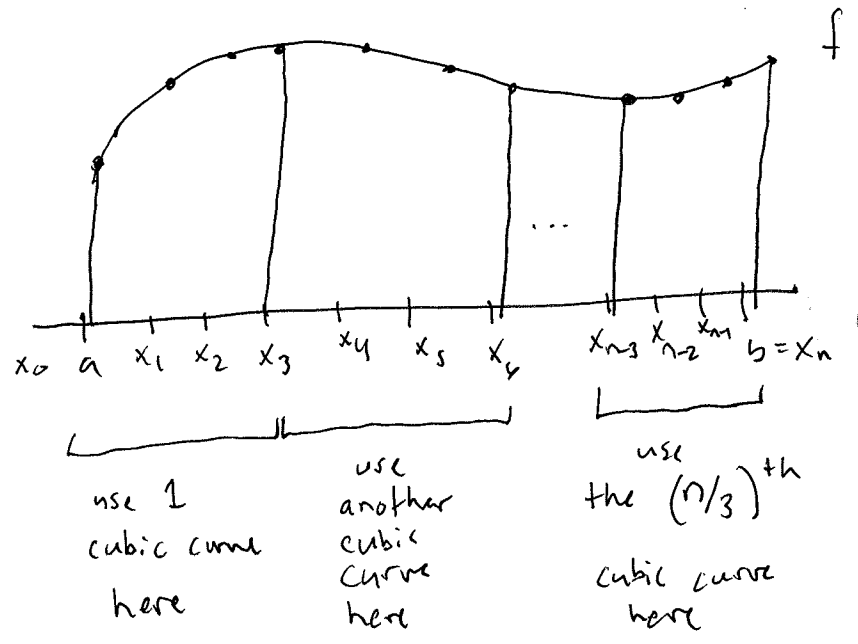 f
...
x₀ a x₁ x₂ x₃ x₄ x₅ x₆ xₙ₋₃ xₙ₋₂ xₙ₋₁ b = xₙ
use 1
cubic curve
here
use
another
cubic
curve
here
use
the (n/3)ᵗʰ
cubic curve
here